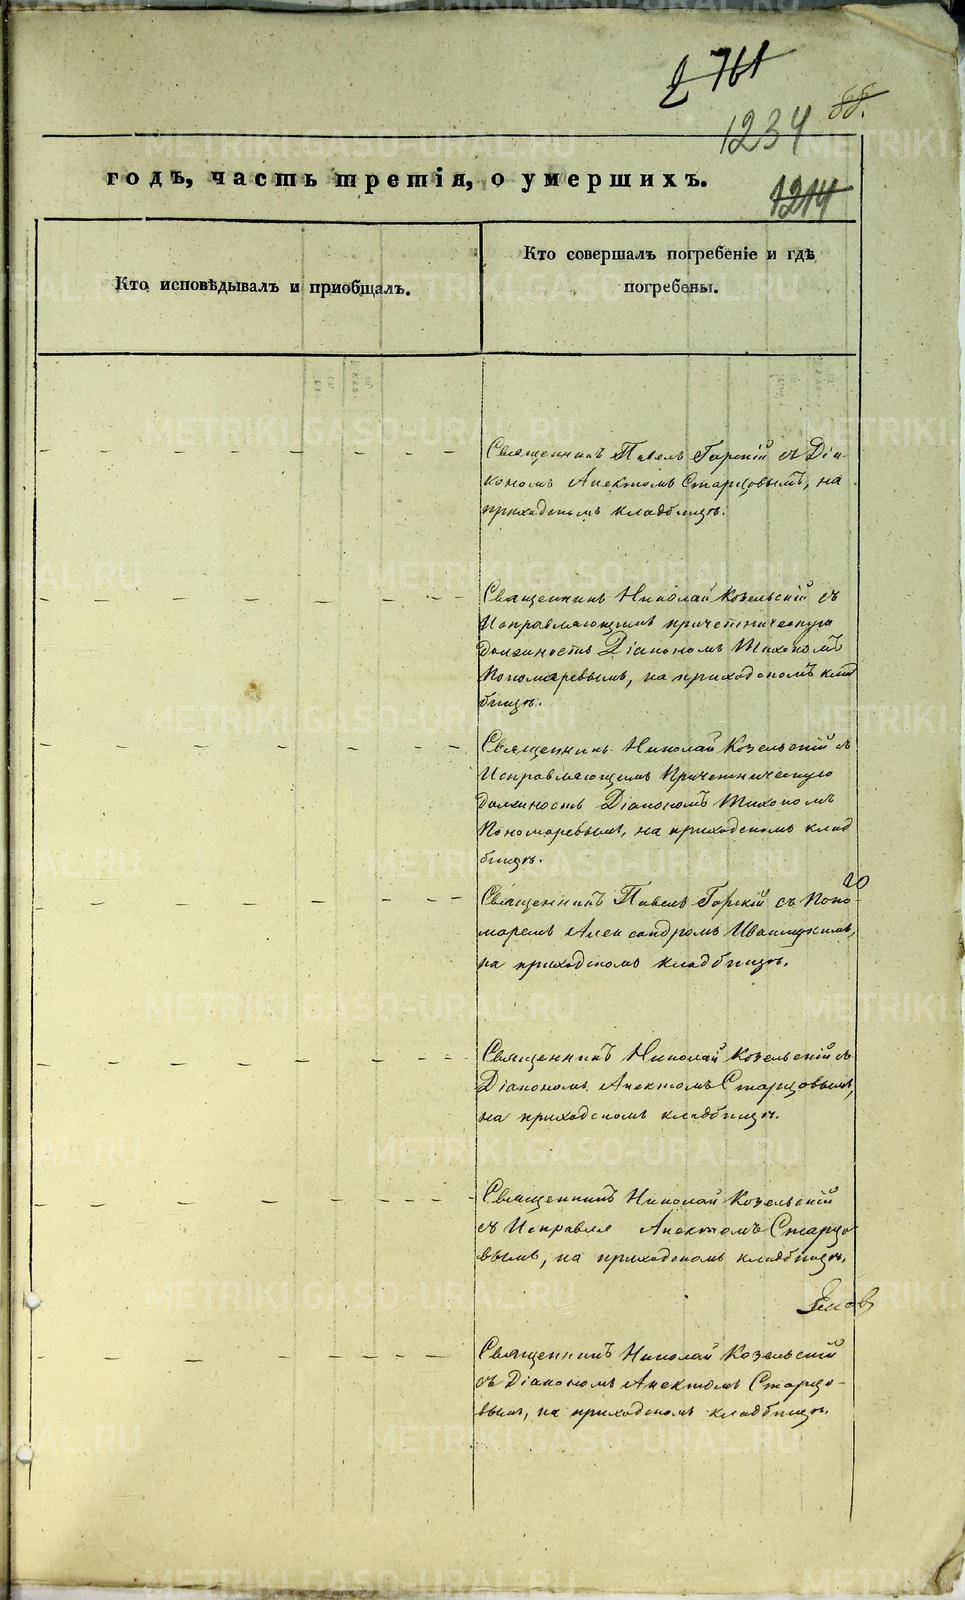 761
1234
1214
годъ, часть третія, о умершихъ.
Кто исповѣдывалъ и приобщалъ.
Кто совершалъ погребеніе и гдѣ
погребены.
Священникъ Павелъ Горскій съ Діа-
кономъ Анектомъ Старцовымъ, на
приходскомъ кладбищѣ.
Священникъ Николай Козельскій съ
Исправляющимъ причетническую
должность Діакономъ Тихономъ
Пономаревымъ, на приходскомъ клад
бищѣ.
Священникъ Николай Козельскій съ
Исправляющимъ Причетническую
должность Діакономъ Тихономъ
Пономаревымъ, на приходскомъ клад
бищѣ.
Священникъ Павелъ Горскій съ Поно-
маремъ Александромъ
на приходскомъ кладбищѣ.
Священникъ Николай Козельскій съ
Діакономъ Анектомъ Старцовымъ,
на приходскомъ кладбищѣ.
Священникъ Николай Козельскій
съ Исправля Анектомъ Старцо
вымъ, на приходскомъ кладбищѣ.
Священникъ Николай Козельскій
съ Діакономъ Анектомъ Старцо-
вымъ, на приходскомъ кладбищѣ.
METRIKI.GASO-URAL.RU